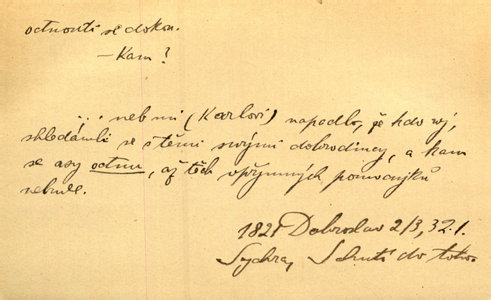 octnouti se dokon.
– Kam?
... neb mi (Karlovi) napadlo, že kdo ví,
shledám-li se s těmi svými dobrodinci, a kam
se asy octnu, až těch upřímných pomocnjků
nebude.
1821 Dobroslav 2/3, 32.
Sychra,